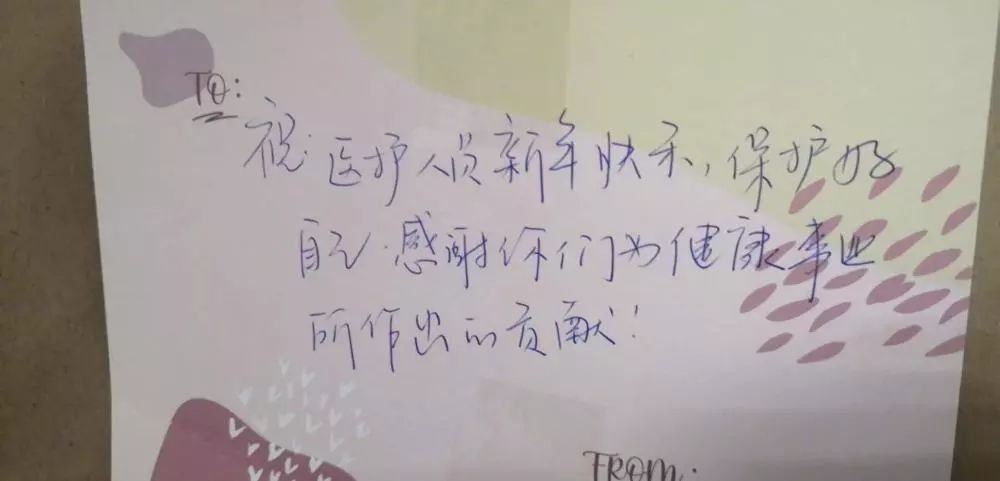 TO:
祝:医护人员新年快乐,保护好
自己.感谢你们为健康事业
所作出的贡献!
FROM: